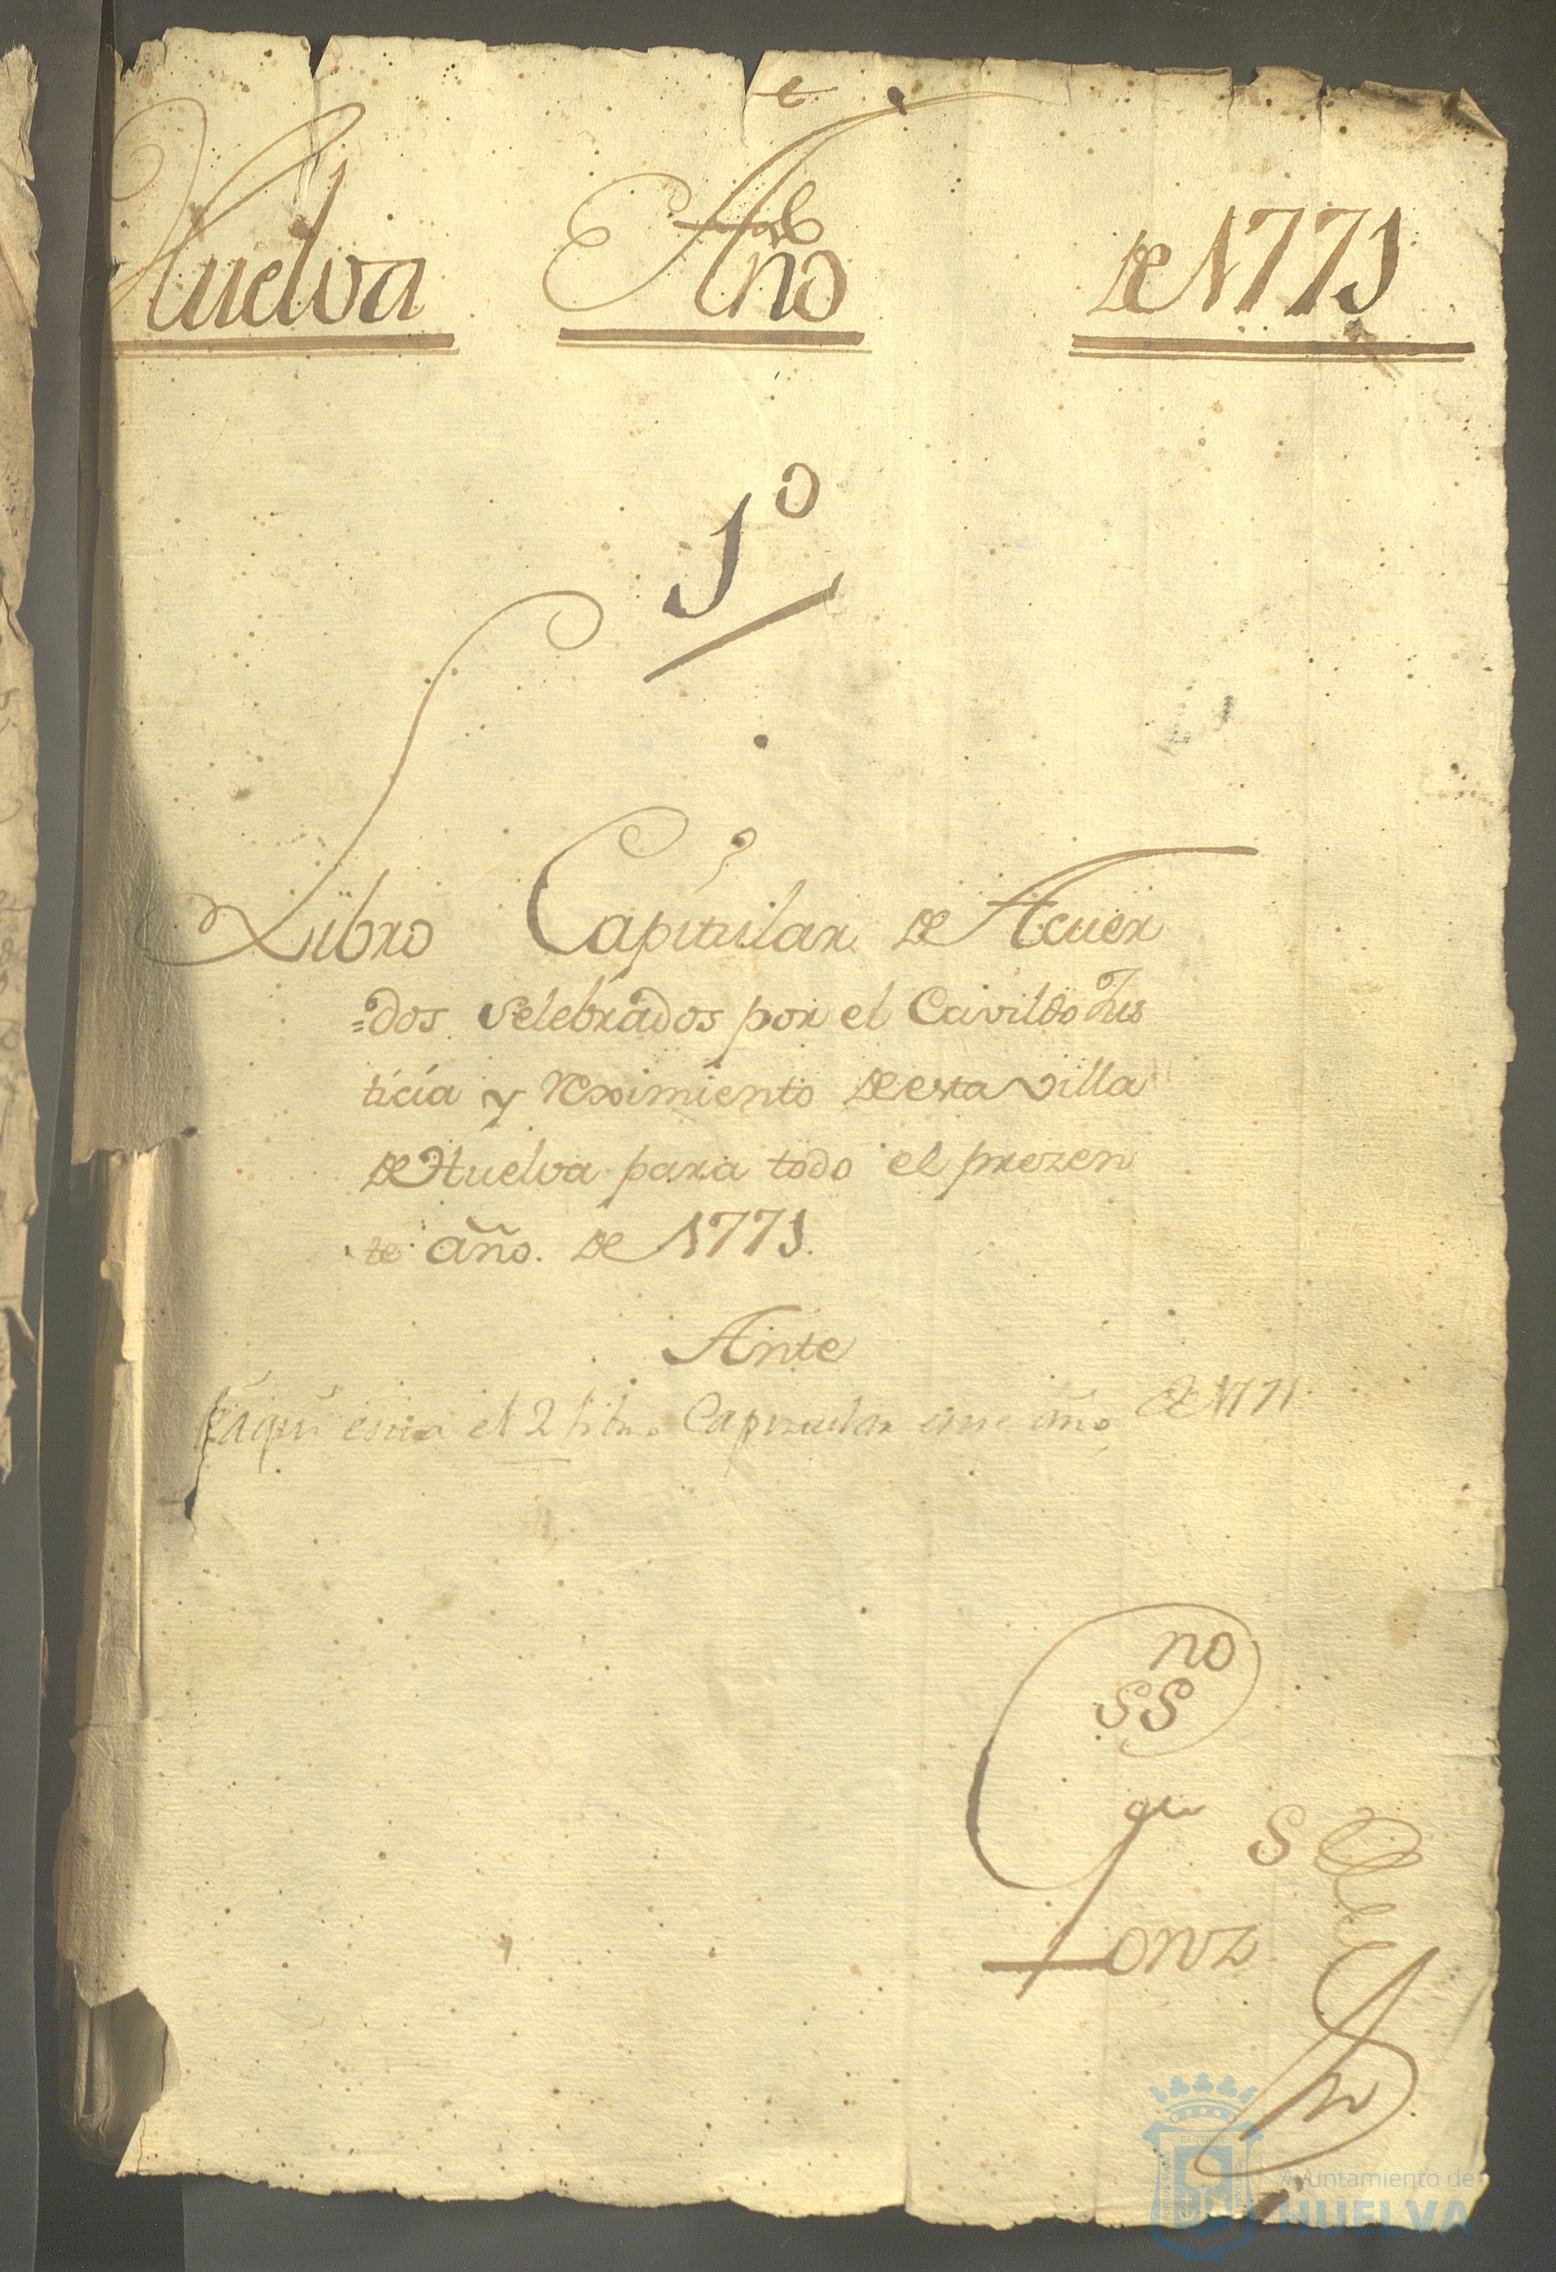 Huelva Año de 1771
1º
Libro Capitular de Acuer
=dos Selebrados por el Cavildo Jus
ticia y reximiento de esta villa
de Huelva para todo el prezen
te año. de 1771.
Ante
aqui esta el 2 libro Capitular este año de 1771
no
SS
S
Gonz
Ayuntamiento de
HUELVA